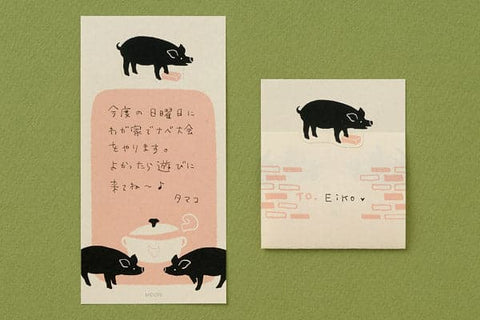 今度の日曜日に
わが家でナベ大会
をやります。
よかったら遊びに
来てね〜♪
タマコ
TO. Eiko.♥